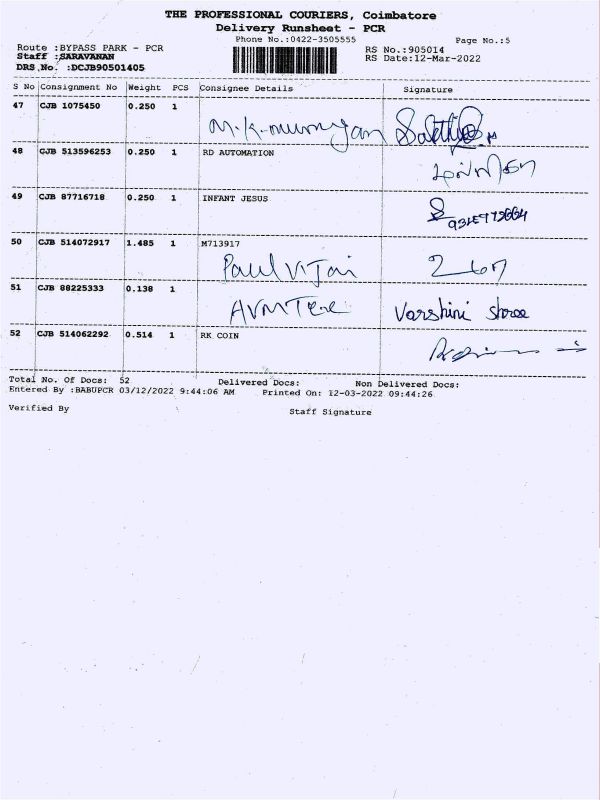 THE PROFESSIONAL COURIERS, Coimbatore
Delivery Runsheet - PCR
Phone No.:0422-3505555 Page No.:5
Route :BYPASS PARK - PCR RS No.:905014
Staff :SARAVANAN RS Date:12-Mar-2022
DRS No. :DCJB90501405
S No Consignment No Weight PCS Consignee Details Signature
47 CJB 1075450 0.250 1
M.K.murugan
48 CJB 513596253 0.250 1 RD AUTOMATION
49 CJB 87716718 0.250 1 INFANT JESUS
50 CJB 514072917 1.485 1 M713917
Paul Vijai
51 CJB 88225333 0.138 1
Varshini shree
52 CJB 514062292 0.514 1 RK COIN
Total No. Of Docs: 52 Delivered Docs: Non Delivered Docs:
Entered By :BABUPCR 03/12/2022 9:44:06 AM Printed On: 12-03-2022 09:44:26
Verified By Staff Signature